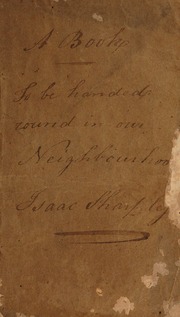 A Book
to be handed
round in our
Neighbourhoo
Isaac